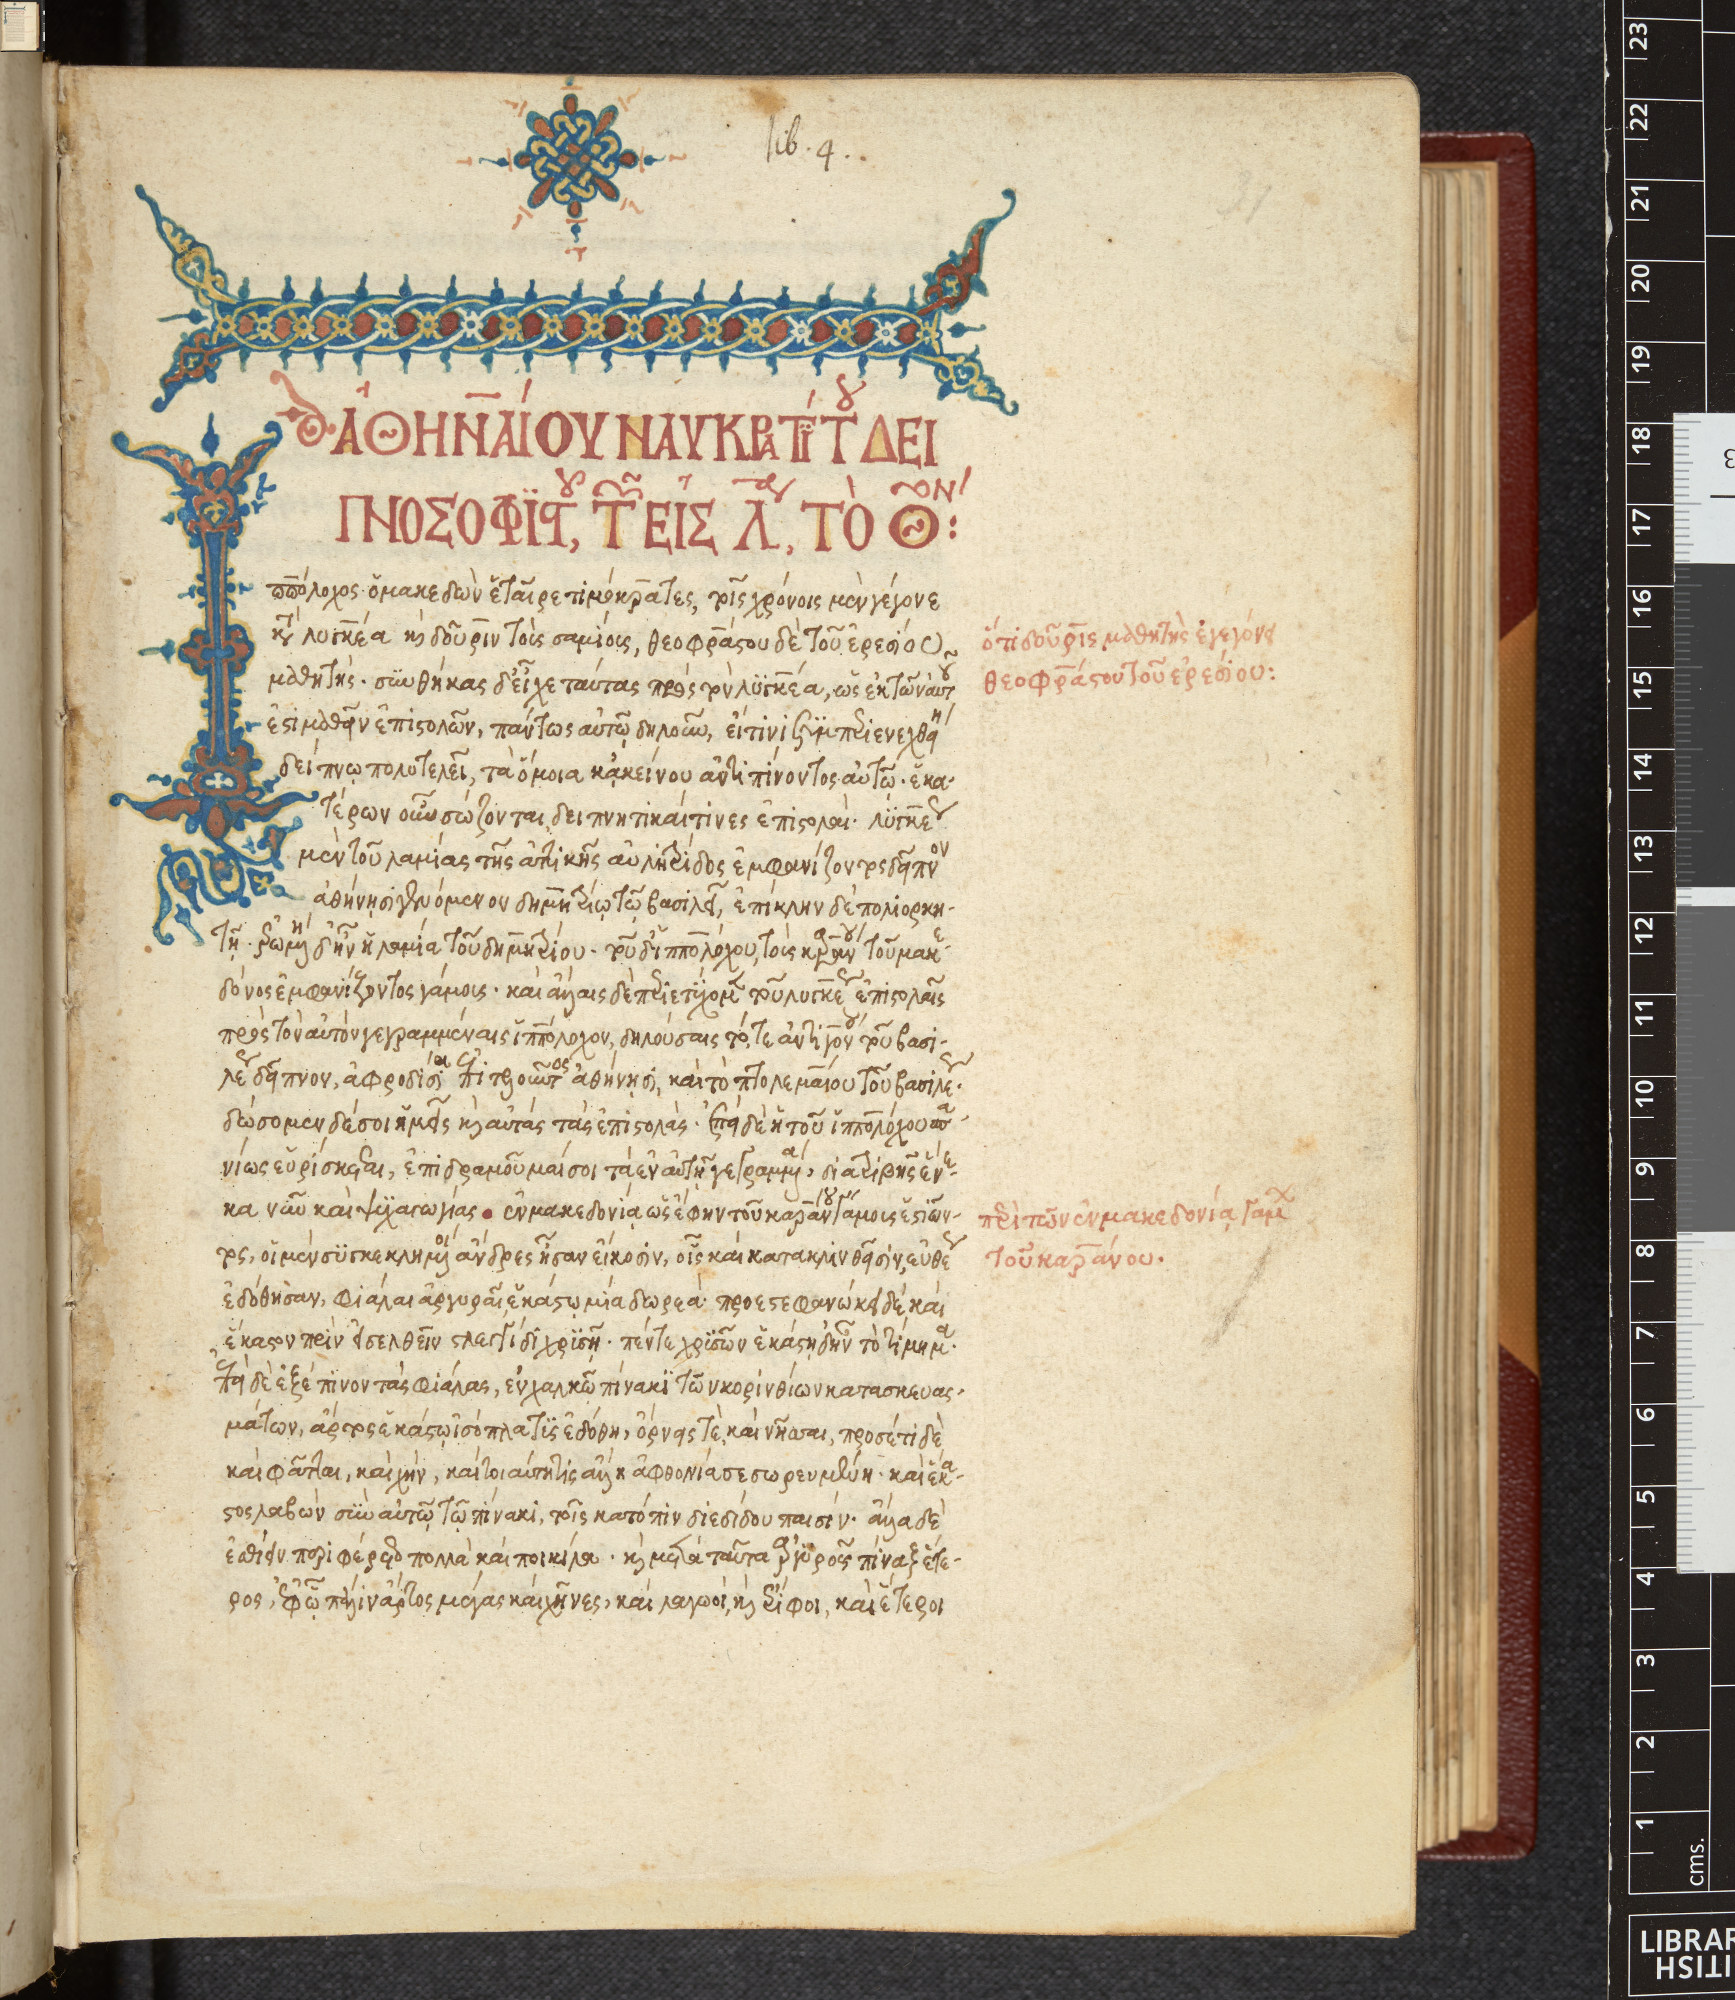 lib. 4.
Δ ἈΘΗΝΑΊΟΥ ΝΑΥΚΡΑΤΊΤΟΥ ΔΕΙ
ΠΝΟΣΟΦΙΣΤΟΥ, ΤῶΝ ΕἸΣ Λ, ΤῸ Θ:
Ἱππόλοχος ὁ μακεδὼν ἑταῖρε τιμόκρατες, τοῖς χρόνοις μὲν γέγονε
κατὰ λυγκέα καὶ δοῦριν τοὺς σαμίους, θεοφράστου δὲ τοῦ ἐρεσίου
μαθητής. συνθήκας δ' εἶχε ταύτας πρὸς τὸν λυγκέα, ὡς ἐκ τῶν αὐτοῦ
ἐστι μαθεῖν ἐπιστολῶν, πάντως αὐτῷ δηλοῦν, εἴ τινι συμπεριενεχθείη
δείπνῳ πολυτελεῖ, τὰ ὅμοια κἀκείνου ἀντιπίνοντος αὐτῷ. ἑκα-
τέρων οὖν σώζονται δειπνητικαί τινες ἐπιστολαί. λυγκέως
μὲν τοῦ λαμίας τῆς ἀττικῆς αὐλητρίδος ἐμφανίζοντος δεῖπνον
ἀθήνησι γενόμενον δημητρίῳ τῷ βασιλεῖ, ἐπίκλην δὲ πολιορκη-
τῇ. ἐρωμένη δ' ἦν ἡ λαμία τοῦ δημητρίου. τοῦ δ' ἱππολόχου, τοὺς καράνου τοῦ μακε-
δόνος ἐμφανίζοντος γάμους. καὶ ἄλλαις δὲ περιετύχομεν τοῦ λυγκέως ἐπιστολαῖς
πρὸς τὸν αὐτὸν γεγραμμέναις ἱππόλοχον, δηλούσαις τό, τε ἀντιγόνου τοῦ βασι-
λέως δεῖπνον, ἀφροδίσια ἐπιτελοῦντος ἀθήνησι, καὶ τὸ πτολεμαίου τοῦ βασιλέως.
δώσομεν δέ σοι ἡμεῖς καὶ αὐτὰς τὰς ἐπιστολάς. ἐπεὶ δὲ ἡ τοῦ ἱππολόχου σπα-
νίως εὑρίσκεται, ἐπιδραμοῦμαί σοι τὰ ἐν αὐτῇ γεγραμμένα, διατριβῆς ἕνε-
κα νῦν καὶ ψυχαγωγίας. ἐν μακεδονίᾳ ὡς ἔφην τοῦ καράνου γάμους ἑστιῶν-
τος, οἱ μὲν συγκεκλημένοι ἄνδρες ἦσαν εἴκοσιν, οἷς καὶ κατακλινθεῖσιν, εὐθέως
ἐδόθησαν, φιάλαι ἀργυραῖ, ἑκάστῳ μία δωρεά. προεστεφανώκει δὲ καὶ
ἕκαστον πρὶν εἰσελθεῖν στλεγγίδι χρυσῇ. πέντε χρυσῶν ἑκάστῃ δ' ἦν τὸ τίμημα.
ἐπεὶ δὲ ἐξέπινον τὰς φιάλας, ἐν χαλκῷ πίνακι τῶν κορινθίων κατασκευασ-
μάτων, ἄρτος ἑκάστῳ ἰσόπλατυς ἐδόθη, ὄρνεις τὲ, καὶ νῆσσαι, προσέτι δὲ
καὶ φάτται, καὶ χήν, καὶ τοιαύτη τις ἄλλη ἀφθονία σεσωρευμένη. καὶ ἕκα-
στος λαβὼν σὺν αὐτῷ τῷ πίνακι, τοῖς κατόπιν διεδίδου παισίν. ἄλλα δὲ
ἐσθίειν περιεφέρετο πολλὰ καὶ ποικίλα. καὶ μετὰ ταῦτα ἀργυροῦς πίναξ ἕτε-
ρος, ἐφ' ᾧ πάλιν ἄρτος μέγας καὶ χῆνες, καὶ λαγωοί, καὶ ἔριφοι, καὶ ἕτεροι
ὅτι δοῦρις μαθητὴς ἐγεγόνει
θεοφράστου τοῦ ἐρεσίου:
περὶ τῶν ἐν μακεδονίᾳ γάμων
τοῦ καράνου.
23
22
21
20
19
18
17
16
15
14
13
12
11
10
9
8
7
6
5
4
3
2
1
cms.